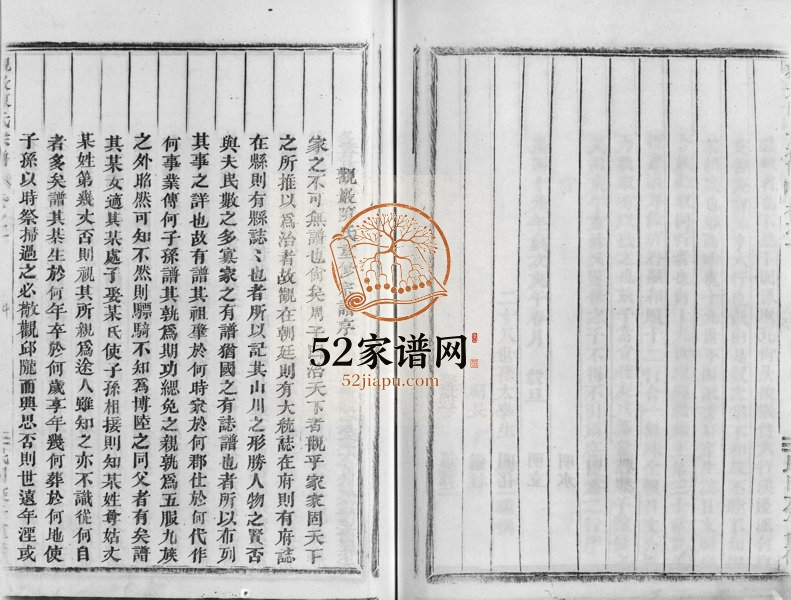 觀巌
氏
譜序
家之不可無譜也尙矣周子
治天下者觀乎家家固天下
之所推以爲治者故觀在朝廷則有大統誌在府則有府誌
在縣則有縣誌〻也者所以記其山川之形勝人物之賢否
與夫民數之多寡家之有譜猶國之有誌譜也者所以布列
其事之詳也故有譜其祖肇於何時家於何郡仕於何代作
何事業傳何子孫譜其孰爲期功緦免之親孰爲五服九族
之外昭然可知不然則驃騎不知爲博陸之同父者有矣譜
其某女適其某處子娶某氏使子孫相接則知某姓尊姑丈
某姓第幾丈否則視其所親爲途人雖知之亦不識從何自
者多矣譜其某生於何年卒於何歲享年幾何葬於何地使
子孫以時祭掃過之必散觀邱隴而興思否則世遠年湮或
52家谱网
52jiapu.com